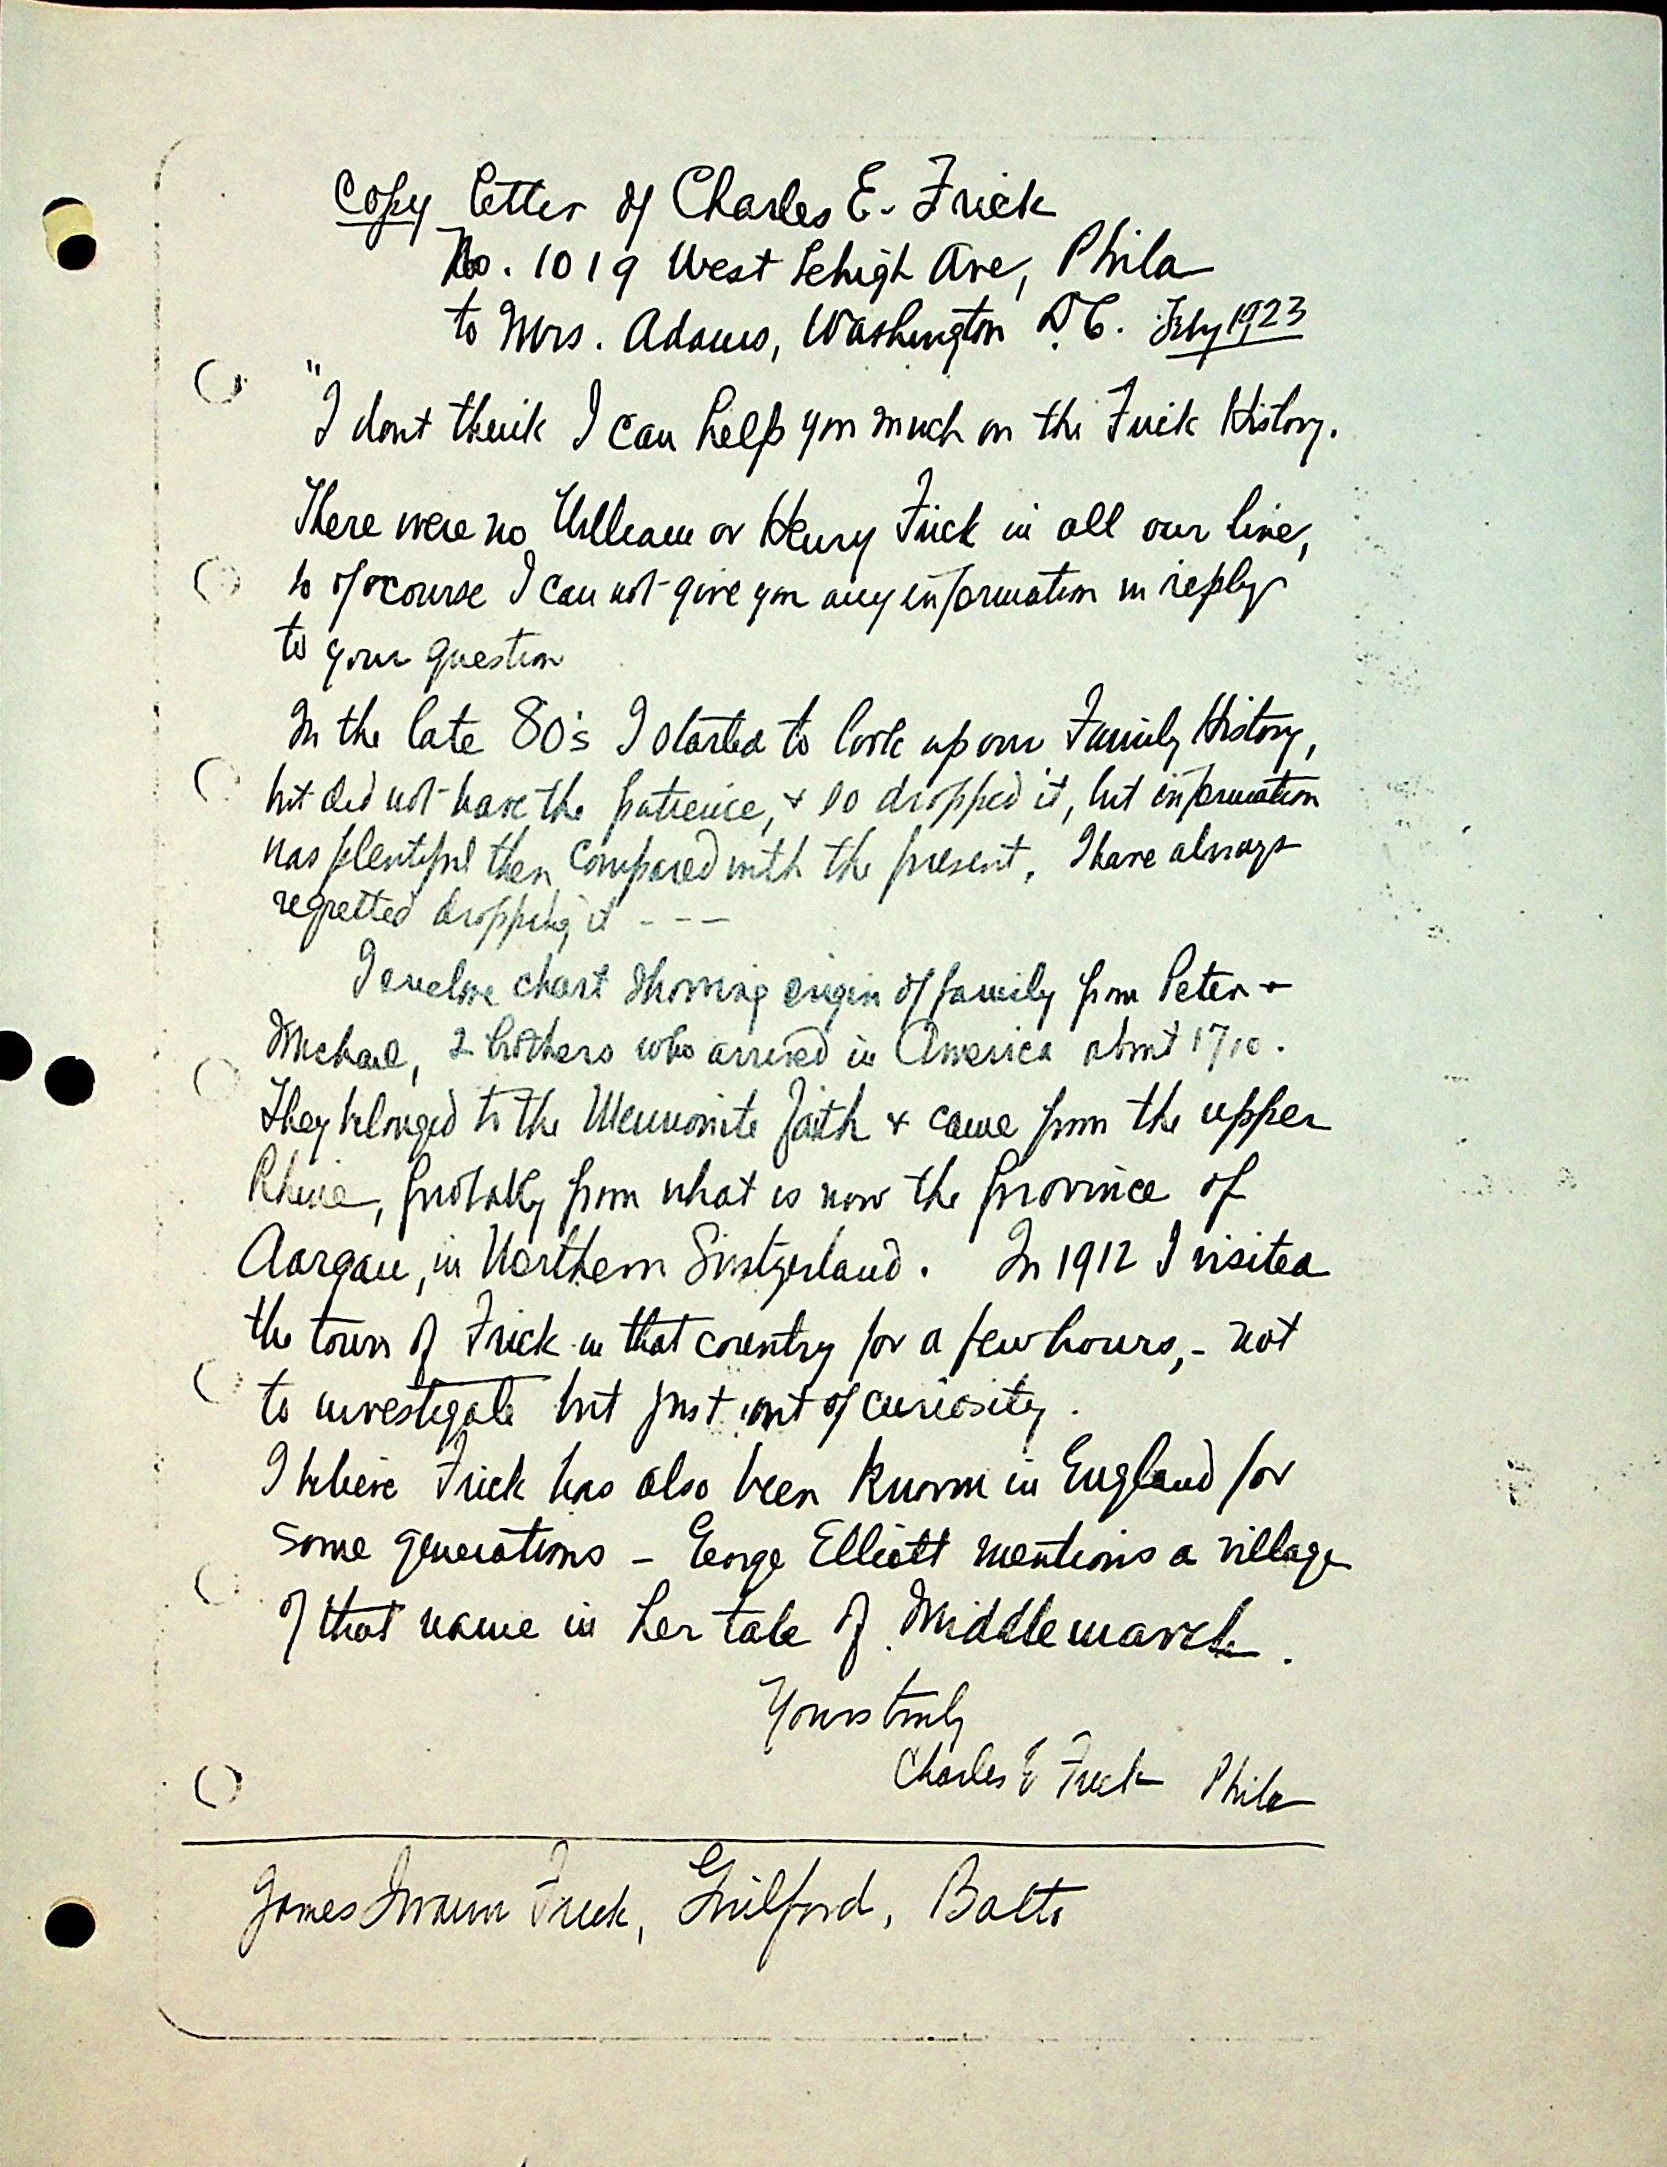 Copy letter of Charles E. Frick
No. 1019 West Lehigh Ave, Phila
to Mrs. Adams, Washington D.C. Feby 1923
"I dont think I can help you much on the Frick History.
There were no William or Henry Frick in all our line,
so of course I can not give you any information in reply
to your question
In the late 80's I started to look up our Family History,
but did not have the patience, & so dropped it, but information
was plentiful then compared with the present. I have always
regretted dropping it - - -
I enclose chart showing origin of family from Peter &
Michael, 2 brothers who arrived in America about 1710.
They belonged to the Mennonite faith & came from the upper
Rhine, probably from what is now the province of
Aargau, in Northern Switzerland. In 1912 I visited
the town of Frick in that country for a few hours, - not
to investigate but just out of curiosity.
I believe Frick has also been known in England for
some generations - George Elliott mentions a village
of that name in her tale of Middlemarch.
Yours truly
Charles E Frick Phila
James Swann Frick, Guilford, Balto